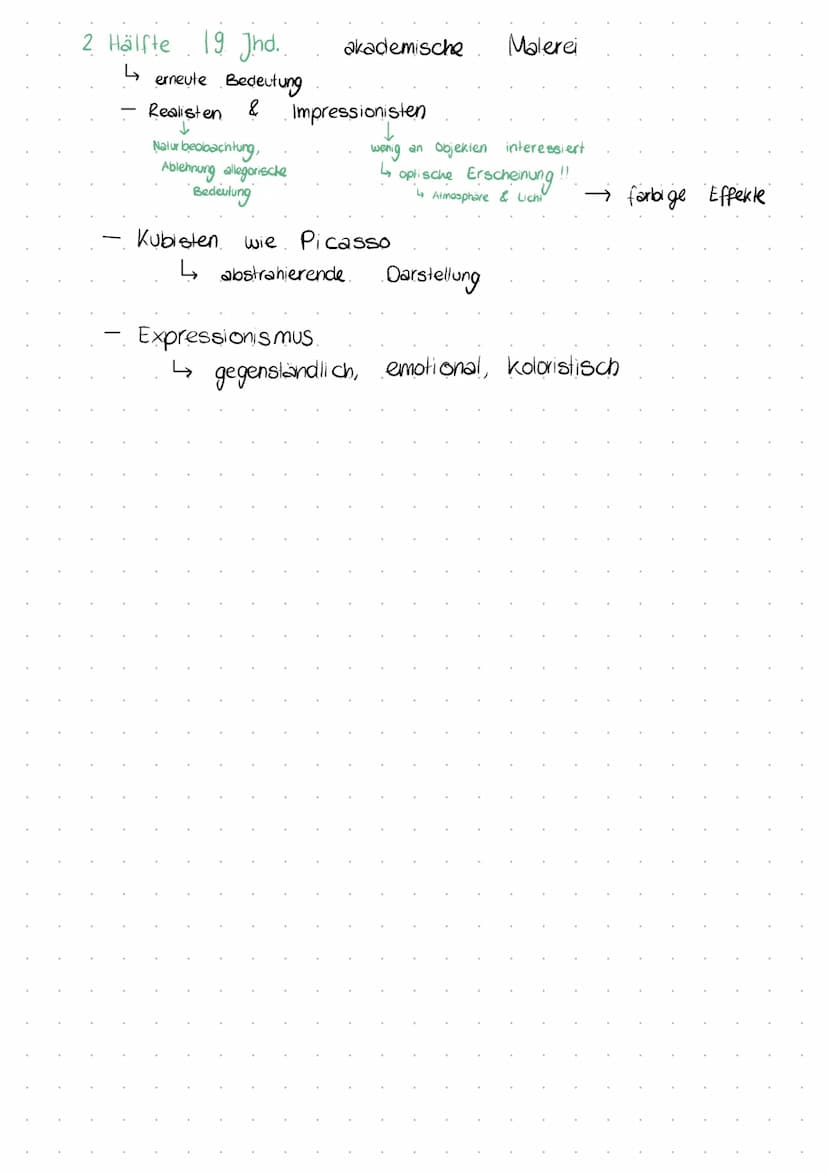 2 Hälfte 19 Jhd. akademische Malerei
↳ erneute Bedeutung
– Realisten & Impressionisten
↓ ↓
Naturbeobachtung, wenig an Objekten interessiert
Ablehnung allegorische ↳ optische Erscheinung!!
Bedeutung ↳ Atmosphäre & Licht → farbige Effekte
– Kubisten wie Picasso
↳ abstrahierende Darstellung
– Expressionismus
↳ gegenständlich, emotional, koloristisch